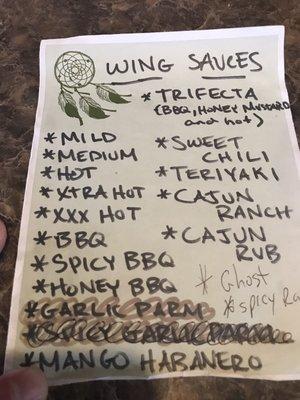 WING SAUCES
* TRIFECTA
(BBQ, HONEY MUSTARD
and hot)
* MILD
* MEDIUM
* HOT
* XTRA HOT
* XXX HOT
* BBQ
* SPICY BBQ
* HONEY BBQ
* GARLIC PARM
* SPICY GARLIC PARM
* MANGO HABANERO
* SWEET
CHILI
* TERIYAKI
* CAJUN
RANCH
* CAJUN
RUB
* Ghost
* spicy Ra